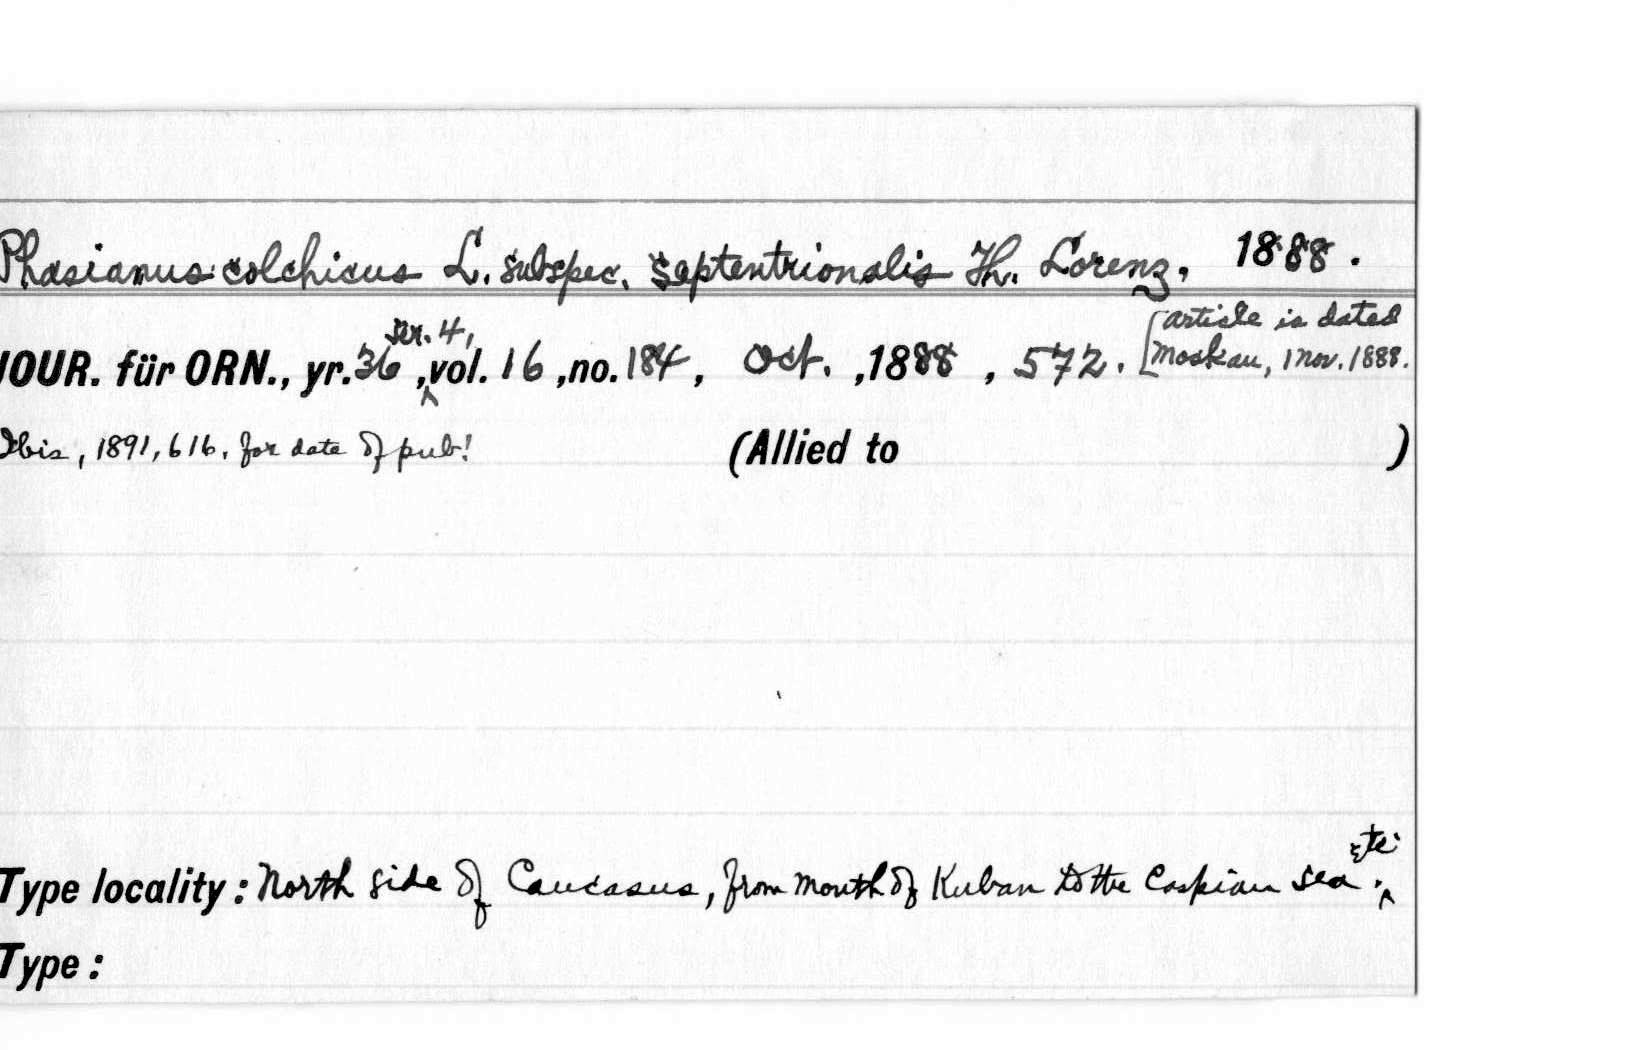 Phasianus colchicus L. subspec. septentrionalis Th. Lorenz, 1888.
JOUR. für ORN., yr. 36, ser. 4, vol. 16, no. 184, Oct., 1888, 572. [article is dated
Moskau, 1 Nov. 1888.
Ibis, 1891, 616. for date of pub! (Allied to )
Type locality: North side of Caucasus, from mouth of Kuban to the Caspian Sea. etc.
Type: